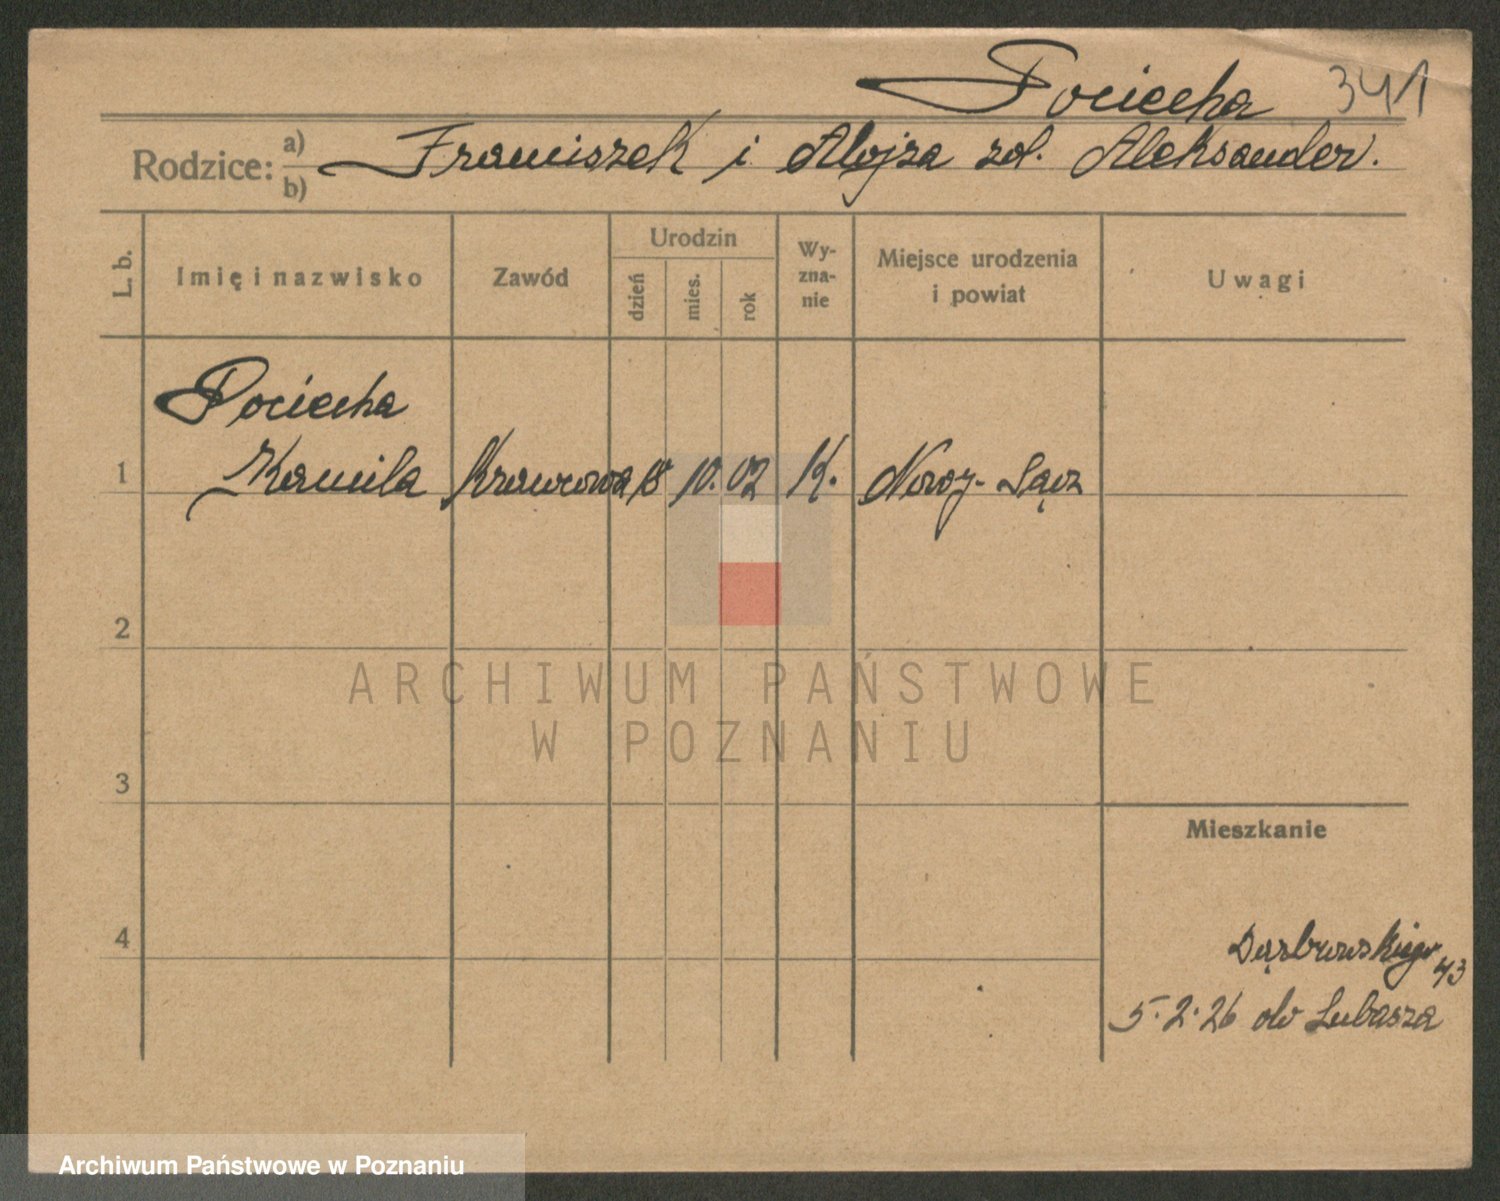 Pociecha 341
Rodzice: a) b) Franciszek i Alojza zol. Aleksander.
L. b.
Imię i nazwisko
Zawód
Urodzin
dzień
mies.
rok
Wy-
zna-
nie
Miejsce urodzenia
i powiat
Uwagi
Pociecha
1 Kamila Krawcowa 10. 02 K. Nowy-Sącz
2
3
4
ARCHIWUM PAŃSTWOWE
W POZNANIU
Mieszkanie
43
5.2.26 do Lubasza
Archiwum Państwowe w Poznaniu